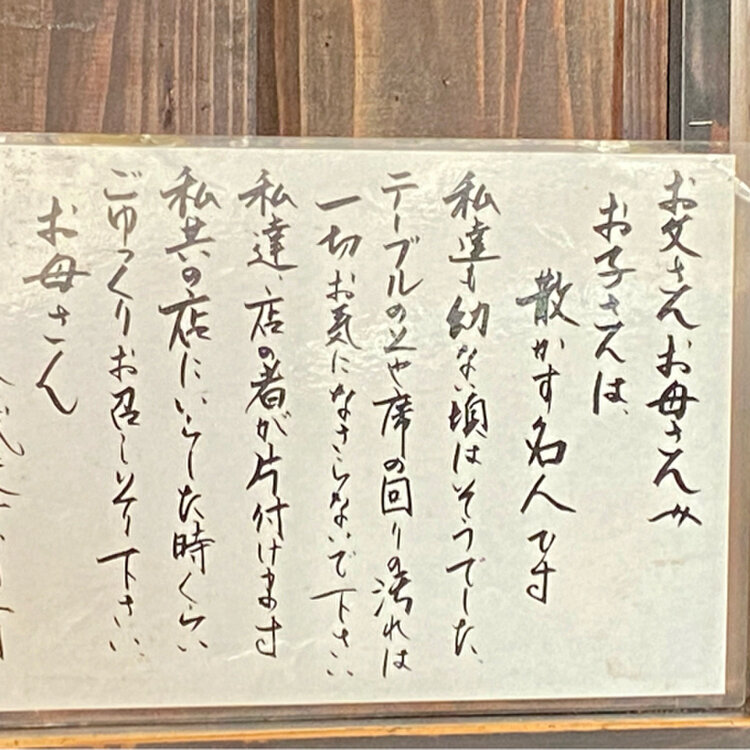 お父さんお母さんへ
お子さんは、
散かす名人です
私達も幼ない頃はそうでした、
テーブルの上や席の回りの汚れは
一切お気になさらないで下さい
私達、店の者が片付けます
私共の店にいらした時くらい
ごゆっくりお召し上り下さい、
お母さん